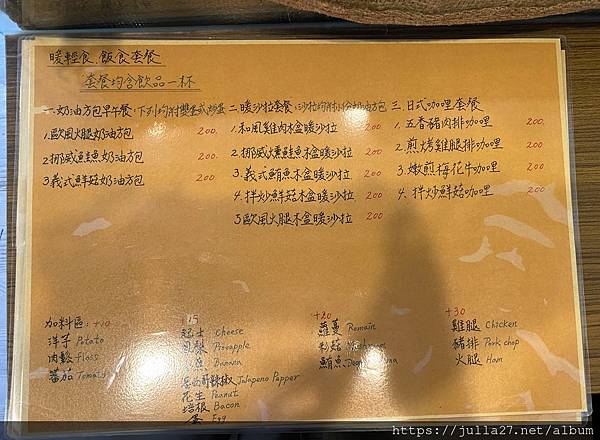 暖輕食.飯食套餐
套餐均含飲品一杯
一.奶油方包早午餐
1.歐風火腿奶油方包 200.
2.挪威鮭魚奶油方包 200.
3.義式鮮菇奶油方包 200.
二.暖沙拉套餐
1.和風雞肉木盒暖沙拉 200
2.挪威燻鮭魚木盒暖沙拉 200
3.義式鮪魚木盒暖沙拉 200
4.拌炒鮮菇木盒暖沙拉 200
5.歐風火腿木盒暖沙拉 200
三.日式咖哩套餐
1.五香豬肉排咖哩 200.
2.煎烤雞腿排咖哩 200.
3.嫩煎梅花牛咖哩 200.
4.拌炒鮮菇咖哩 200.
加料區: +10
洋芋 Potato
肉鬆 Floss
蕃茄 Tomato
+15
起士 Cheese
鳳梨 Pineapple
Banana
墨西哥辣椒 Jalapeno Pepper
花生 Peanut
培根 Bacon
蛋 Egg
+20
蘿蔓 Romain
鮪魚
+30
雞腿 Chicken
豬排 Pork chop
火腿 Ham
https://julla27.net/album